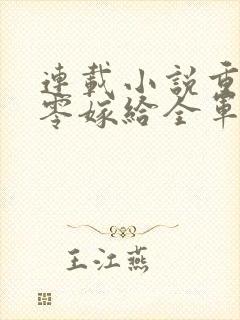 連載小說重
零嫁給全軍
王江燕